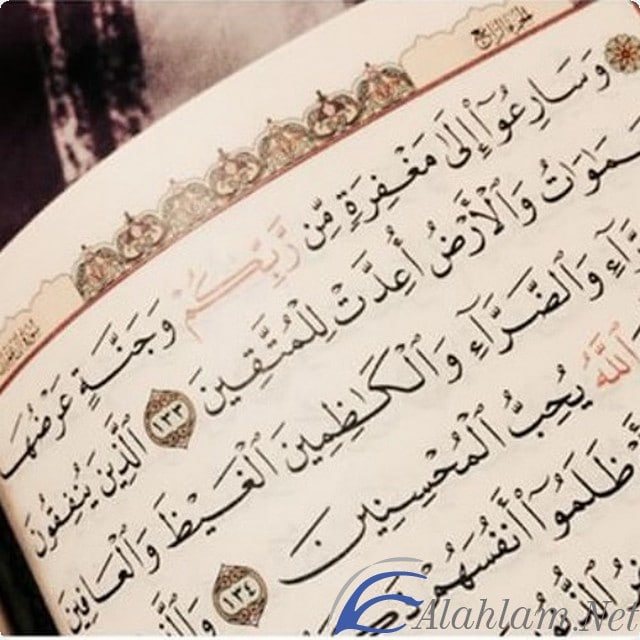 الجزء الرابع
وَسَارِعُوٓا۟ إِلَىٰ مَغْفِرَةٍ مِّن رَّبِّكُمْ وَجَنَّةٍ عَرْضُهَا
مَـٰوَٰتُ وَٱلْأَرْضُ أُعِدَّتْ لِلْمُتَّقِينَ ١٣٣ ٱلَّذِينَ يُنفِقُونَ
رَّآءِ وَٱلضَّرَّآءِ وَٱلْكَـٰظِمِينَ ٱلْغَيْظَ وَٱلْعَافِينَ
ٱللَّهُ يُحِبُّ ٱلْمُحْسِنِينَ ١٣٤
ظَلَمُوٓا۟ أَنفُسَهُمْ
Alahlam.Net